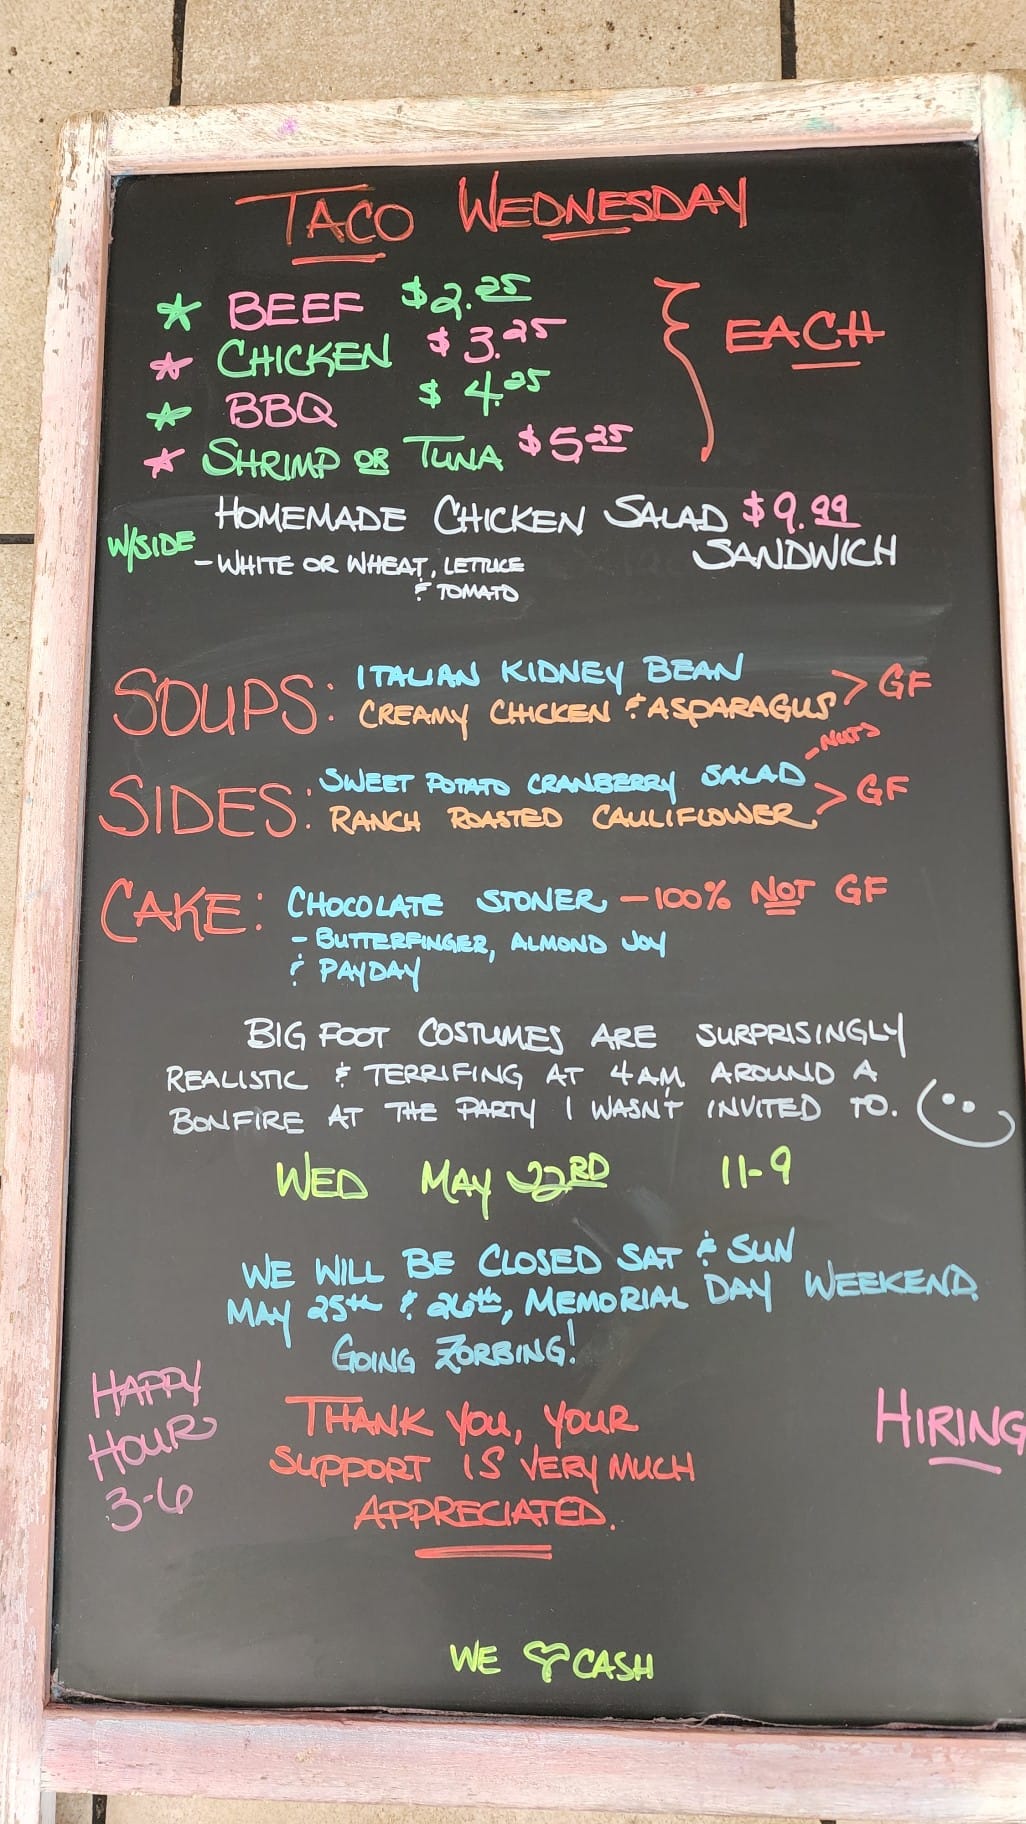 TACO WEDNESDAY
* BEEF $2.25
* CHICKEN $3.25
* BBQ $4.25
* SHRIMP OR TUNA $5.25
EACH
HOMEMADE CHICKEN SALAD $9.99
SANDWICH
W/SIDE
- WHITE OR WHEAT, LETTUCE
& TOMATO
SOUPS: ITALIAN KIDNEY BEAN
CREAMY CHICKEN & ASPARAGUS > GF
- NUTS
SIDES: SWEET POTATO CRANBERRY SALAD
RANCH ROASTED CAULIFLOWER > GF
CAKE: CHOCOLATE STONER - 100% NOT GF
- BUTTERFINGER, ALMOND JOY
& PAYDAY
BIG FOOT COSTUMES ARE SURPRISINGLY
REALISTIC & TERRIFING AT 4AM AROUND A
BONFIRE AT THE PARTY I WASN'T INVITED TO.
WED MAY 22RD 11-9
WE WILL BE CLOSED SAT & SUN
MAY 25th & 26th, MEMORIAL DAY WEEKEND.
GOING ZORBING!
HAPPY
HOUR
3-6
THANK YOU, YOUR
SUPPORT IS VERY MUCH
APPRECIATED.
HIRING
WE ♡ CASH